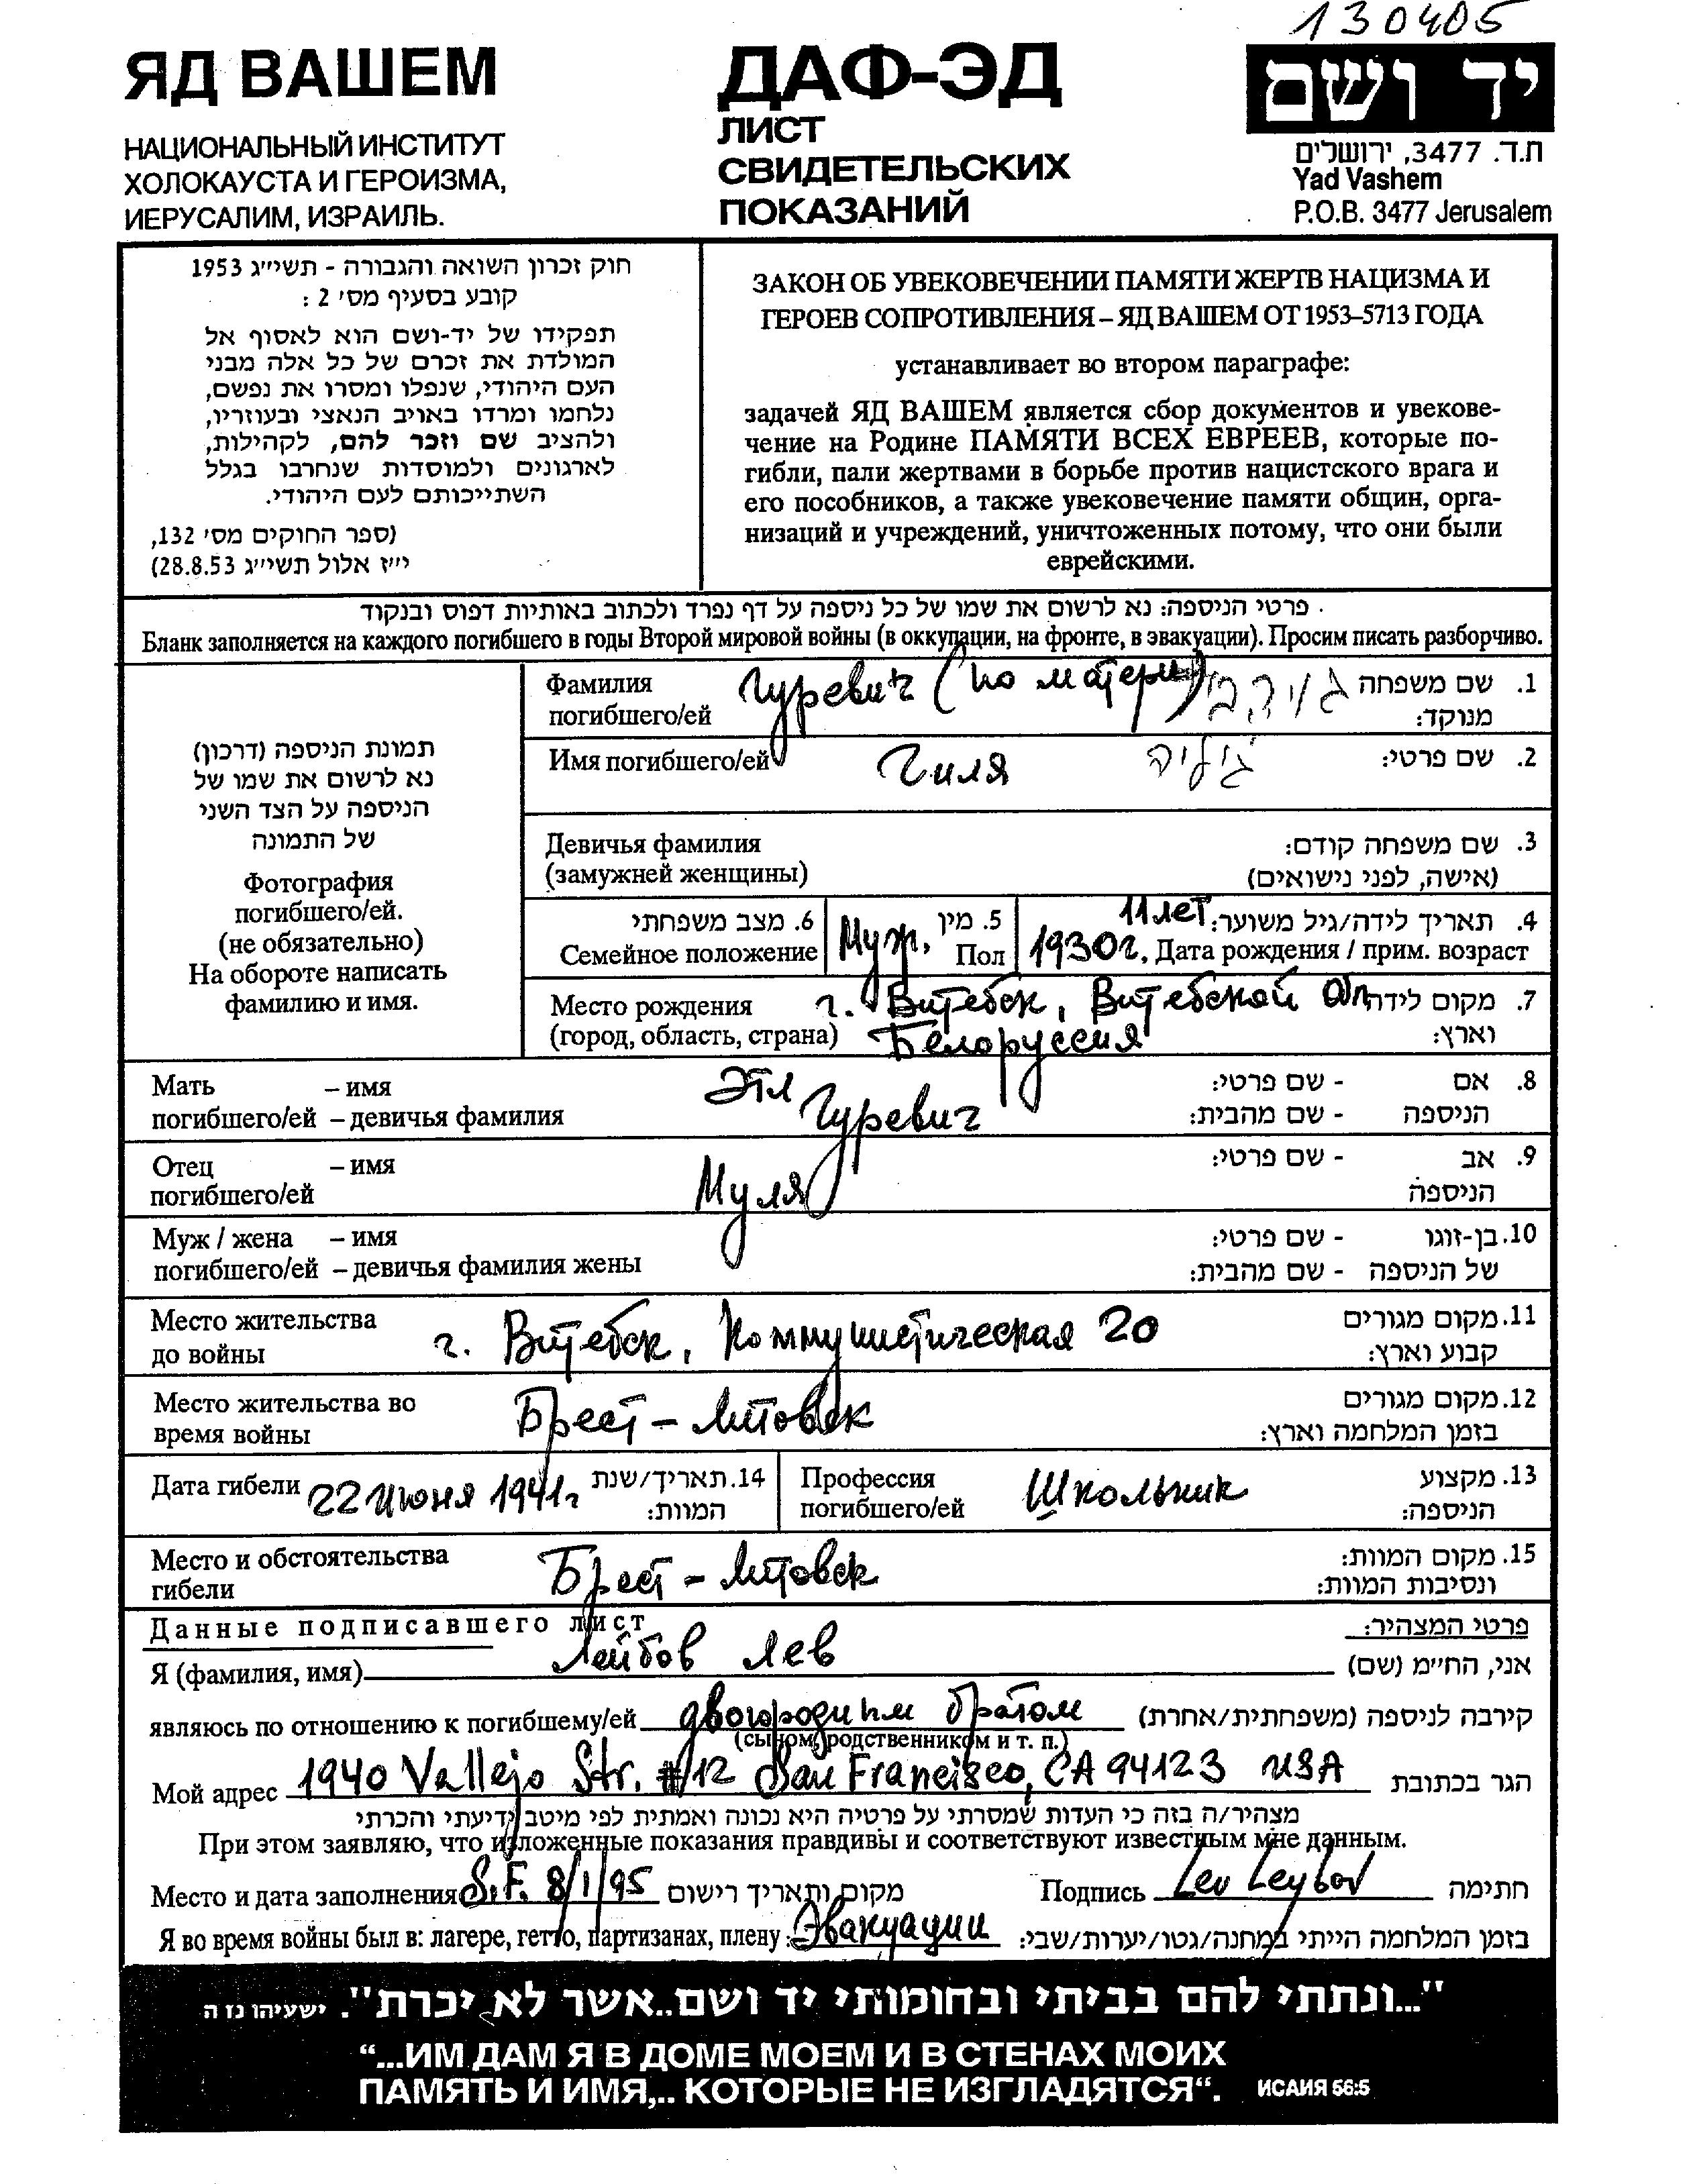 130405
ЯД ВАШЕМ
НАЦИОНАЛЬНЫЙ ИНСТИТУТ
ХОЛОКАУСТА И ГЕРОИЗМА,
ИЕРУСАЛИМ, ИЗРАИЛЬ.
ДАФ-ЭД
ЛИСТ
СВИДЕТЕЛЬСКИХ
ПОКАЗАНИЙ
יד ושם
ת.ד. 3477, ירושלים
Yad Vashem
P.O.B. 3477 Jerusalem
חוק זכרון השואה והגבורה - תשי״ג 1953
קובע בסעיף מס׳ 2 :
תפקידו של יד-ושם הוא לאסוף אל
המולדת את זכרם של כל אלה מבני
העם היהודי, שנפלו ומסרו את נפשם,
נלחמו ומרדו באויב הנאצי ובעוזריו,
ולהציב שם וזכר להם, לקהילות,
לארגונים ולמוסדות שנחרבו בגלל
השתייכותם לעם היהודי.
(ספר החוקים מס׳ 132,
י״ז אלול תשי״ג 28.8.53)
ЗАКОН ОБ УВЕКОВЕЧЕНИИ ПАМЯТИ ЖЕРТВ НАЦИЗМА И
ГЕРОЕВ СОПРОТИВЛЕНИЯ – ЯД ВАШЕМ ОТ 1953–5713 ГОДА
устанавливает во втором параграфе:
задачей ЯД ВАШЕМ является сбор документов и увекове-
чение на Родине ПАМЯТИ ВСЕХ ЕВРЕЕВ, которые по-
гибли, пали жертвами в борьбе против нацистского врага и
его пособников, а также увековечение памяти общин, орга-
низаций и учреждений, уничтоженных потому, что они были
еврейскими.
פרטי הניספה: נא לרשום את שמו של כל ניספה על דף נפרד ולכתוב באותיות דפוס ובנקוד
Бланк заполняется на каждого погибшего в годы Второй мировой войны (в оккупации, на фронте, в эвакуации). Просим писать разборчиво.
תמונת הניספה (דרכון)
נא לרשום את שמו של
הניספה על הצד השני
של התמונה
Фотография
погибшего/ей.
(не обязательно)
На обороте написать
фамилию и имя.
Фамилия Гуревич (по матери) 1. שם משפחה
погибшего/ей מנוקד:
Имя погибшего/ей Гиля גיליה 2. שם פרטי:
Девичья фамилия 3. שם משפחה קודם:
(замужней женщины) (אישה, לפני נישואים)
6. מצב משפחתי 5. מין 11 лет 4. תאריך לידה/גיל משוער:
Семейное положение Муж. Пол 1930г. Дата рождения / прим. возраст
Место рождения г. Витебск, Витебской Обл 7. מקום לידה
(город, область, страна) Белоруссия וארץ:
Мать – имя Этл 8. אם - שם פרטי:
погибшего/ей – девичья фамилия Гуревич הניספה - שם מהבית:
Отец – имя 9. אב - שם פרטי:
погибшего/ей Муля הניספה
Муж / жена – имя 10. בן-זוגו - שם פרטי:
погибшего/ей – девичья фамилия жены של הניספה - שם מהבית:
Место жительства 11. מקום מגורים
до войны г. Витебск, Коммунистическая 20 קבוע וארץ:
Место жительства во 12. מקום מגורים
время войны Брест – Литовск בזמן המלחמה וארץ:
Дата гибели 22 июня 1941г 14. תאריך/שנת המוות:
Профессия Школьник 13. מקצוע
погибшего/ей הניספה:
Место и обстоятельства 15. מקום המוות:
гибели Брест – Литовск ונסיבות המוות:
Данные подписавшего лист פרטי המצהיר:
Я (фамилия, имя) Лейбов Лев אני, הח״מ (שם)
являюсь по отношению к погибшему/ей двоюродным братом קירבה לניספה (משפחתית/אחרת)
(сыном, родственником и т. п.)
Мой адрес 1940 Vallejo Str. #12 San Francisco, CA 94123 USA הגר בכתובת
מצהיר/ה בזה כי העדות שמסרתי על פרטיה היא נכונה ואמתית לפי מיטב ידיעתי והכרתי
При этом заявляю, что изложенные показания правдивы и соответствуют известным мне данным.
Место и дата заполнения S.F. 8/1/95 מקום ותאריך רישום Подпись Lev Leybov חתימה
Я во время войны был в: лагере, гетто, партизанах, плену: Эвакуации בזמן המלחמה הייתי במחנה/גטו/יערות/שבי:
"...ונתתי להם בביתי ובחומותי יד ושם..אשר לא יכרת". ישעיהו נז ה
“...ИМ ДАМ Я В ДОМЕ МОЕМ И В СТЕНАХ МОИХ
ПАМЯТЬ И ИМЯ,.. КОТОРЫЕ НЕ ИЗГЛАДЯТСЯ“. ИСАИЯ 56:5